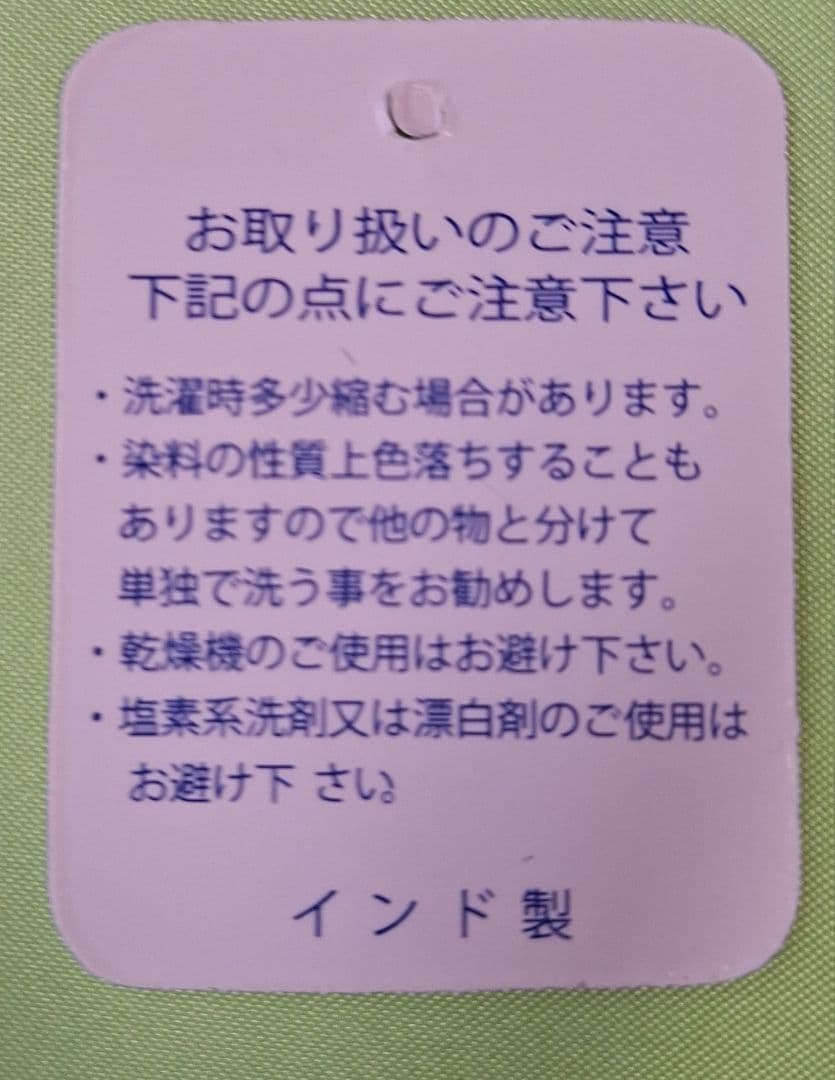 お取り扱いのご注意
下記の点にご注意下さい
・洗濯時多少縮む場合があります。
・染料の性質上色落ちすることも
ありますので他の物と分けて
単独で洗う事をお勧めします。
・乾燥機のご使用はお避け下さい。
・塩素系洗剤又は漂白剤のご使用は
お避け下 さい。
インド製